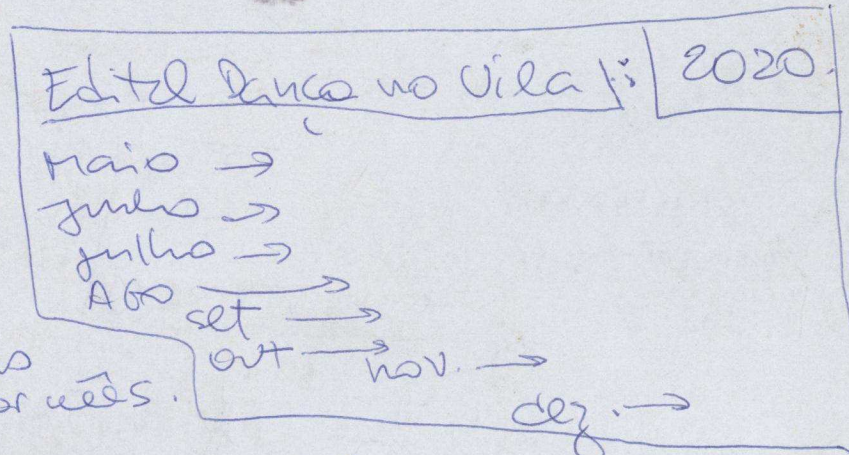 Edital Dança no Vila : 2020.
Maio →
junho →
julho →
AGO →
set →
out → nov. →
mês.
dez. →